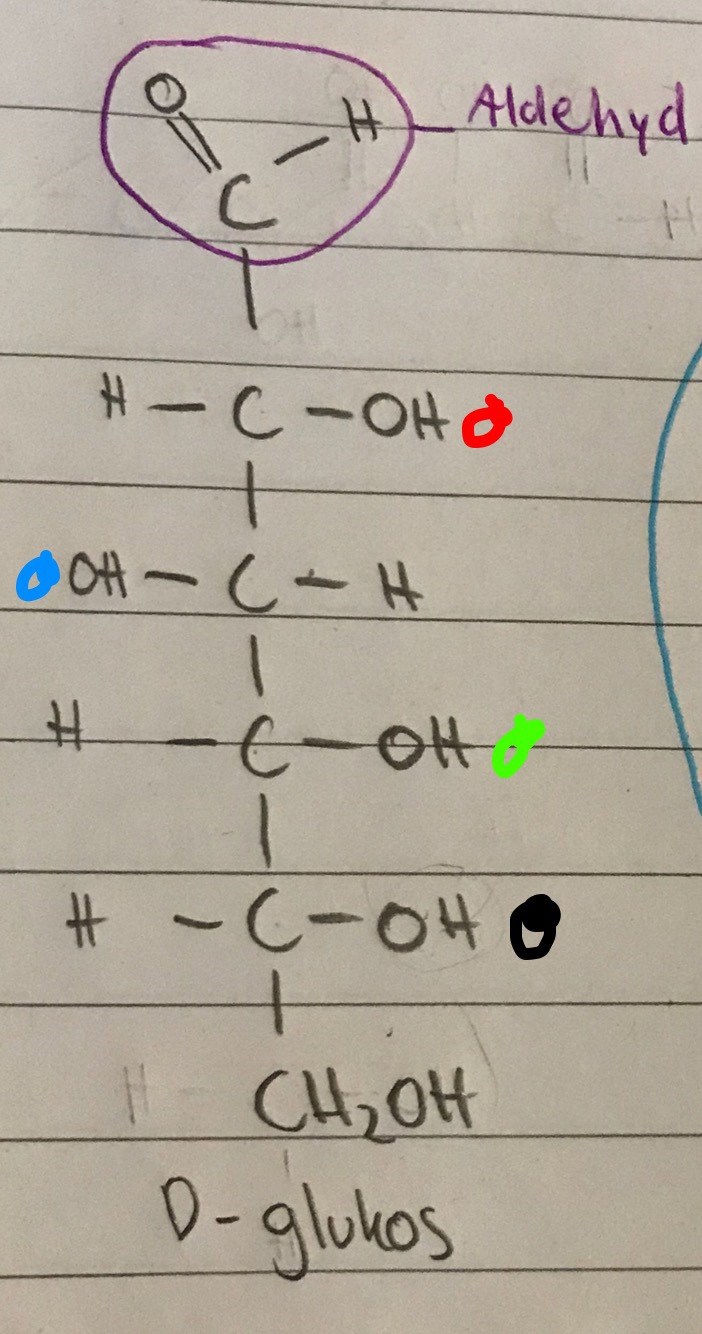 O
H
Aldehyd
C
H - C - OH
OH - C - H
H - C - OH
H - C - OH
CH₂OH
D-glukos